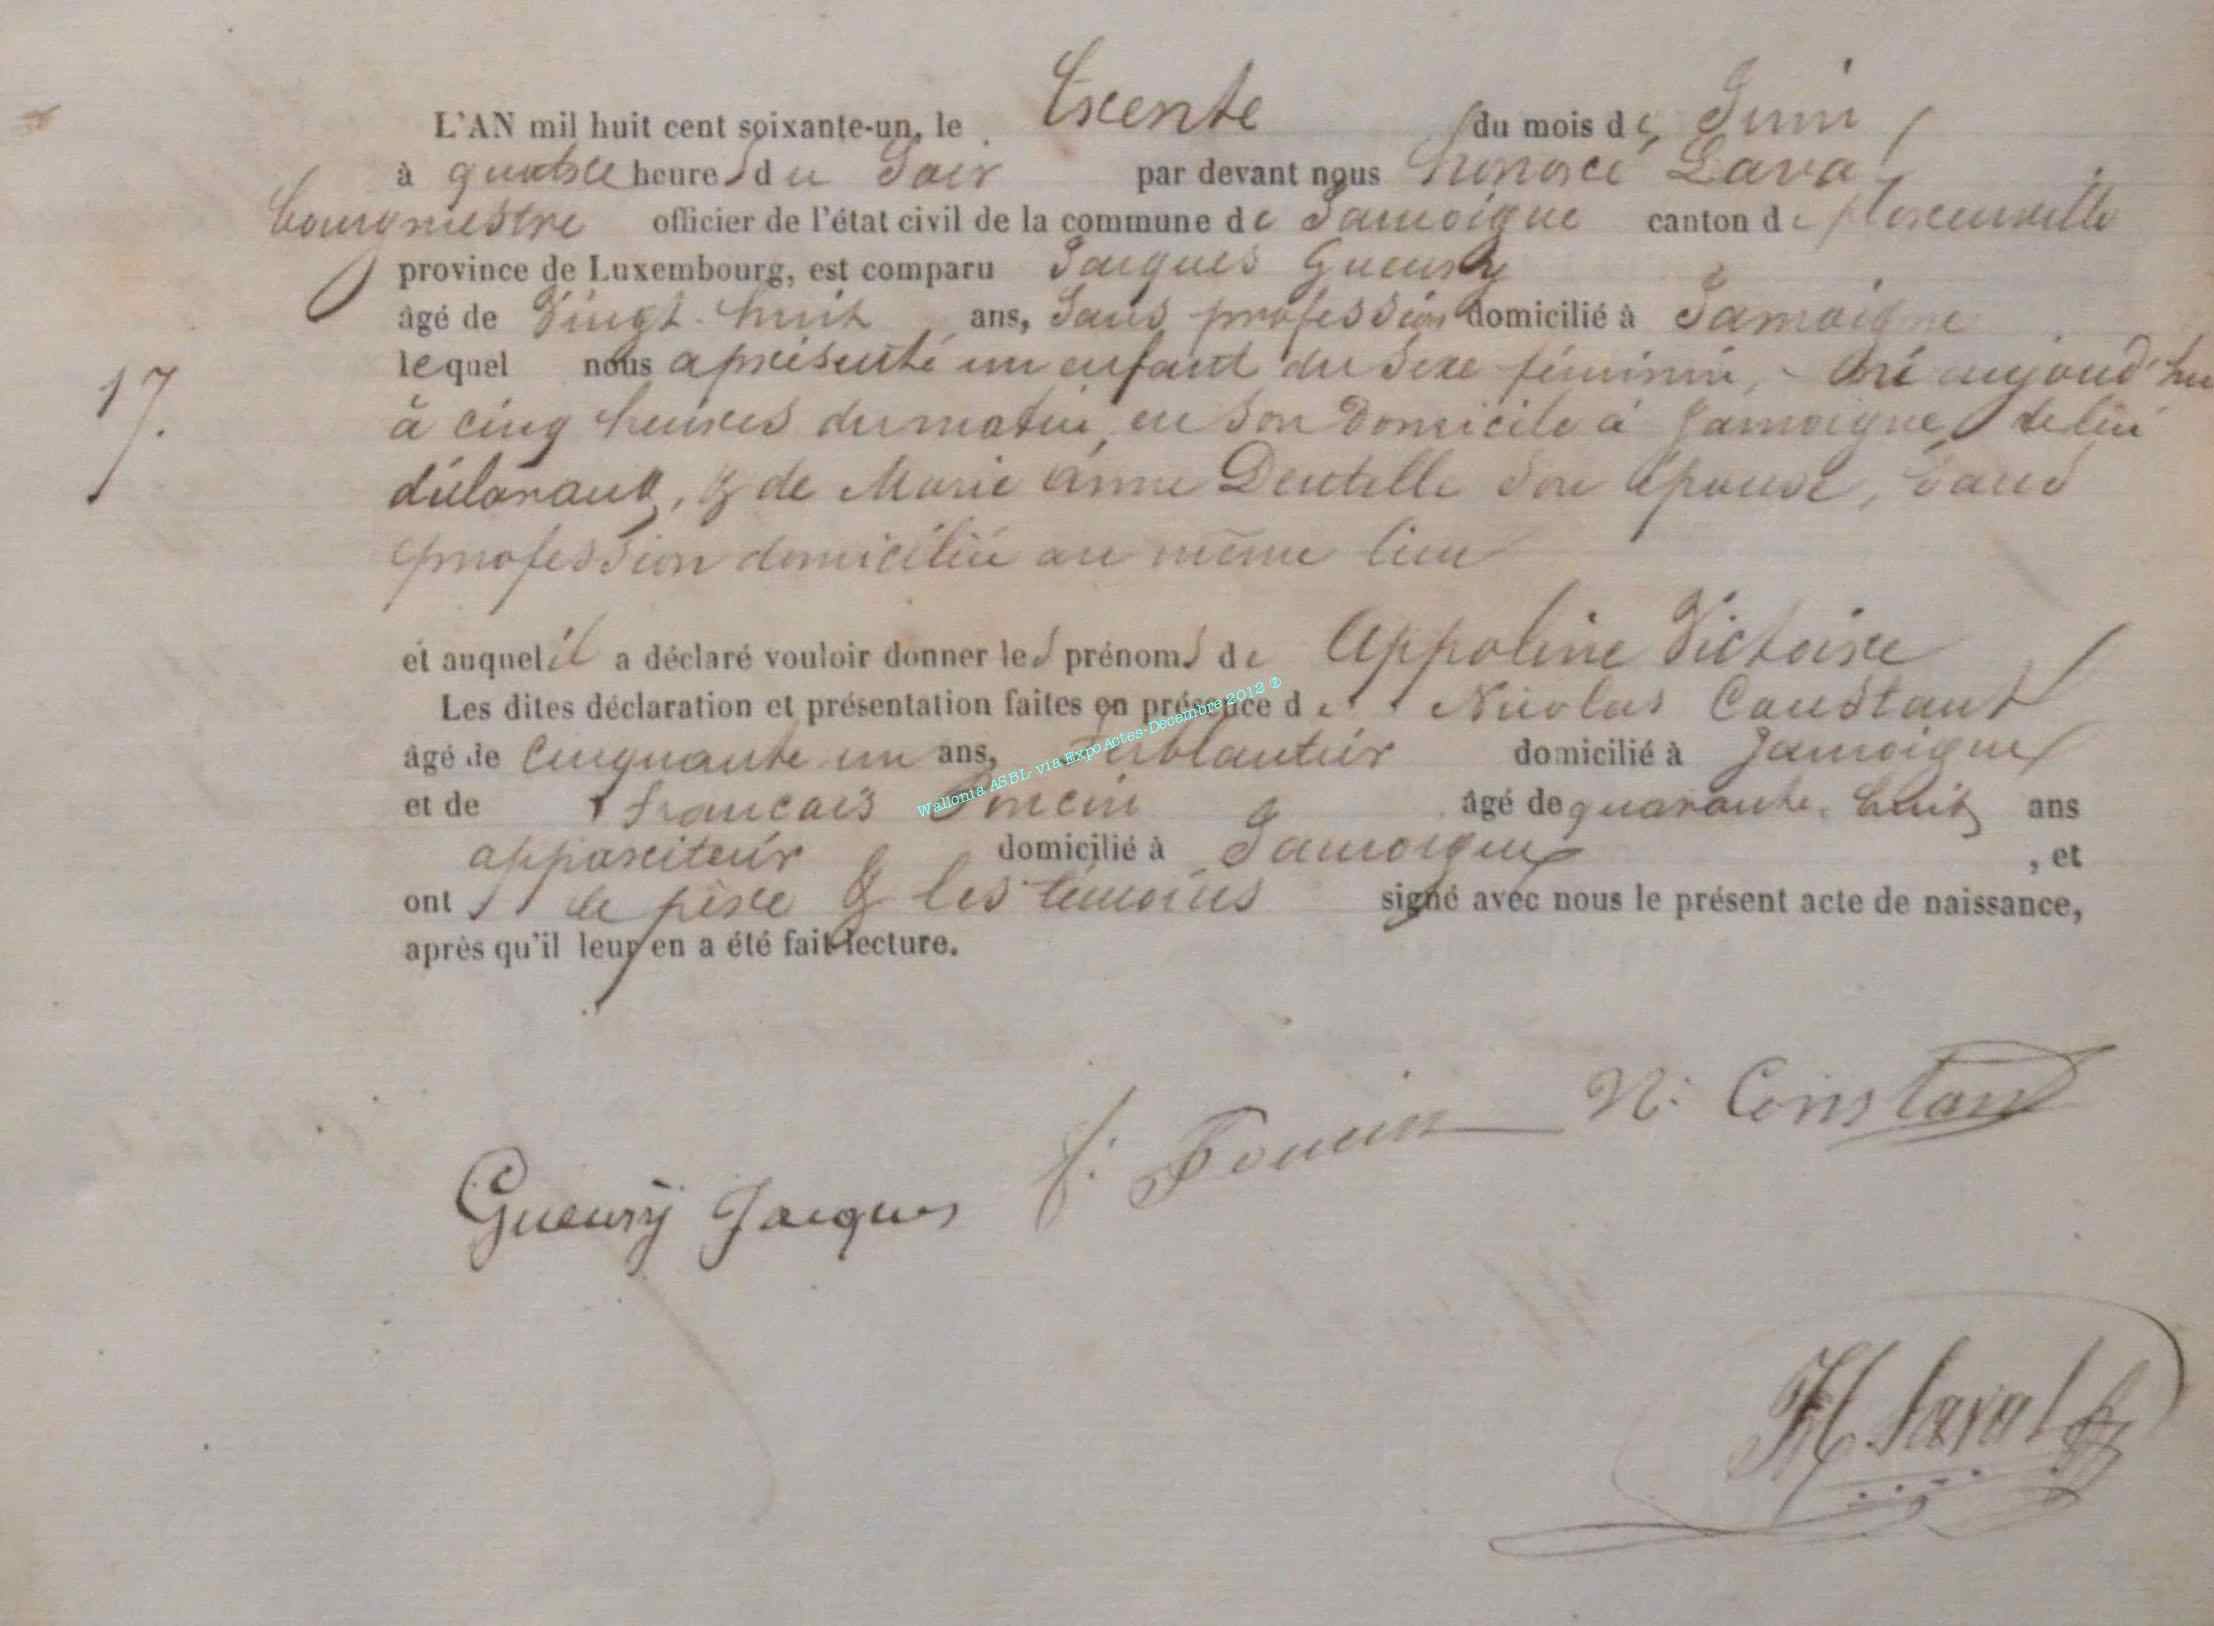 L'AN mil huit cent soixante-un, le Trente du mois de Juin
à quatre heures du Soir par devant nous honoré Laval
bourgmestre officier de l'état civil de la commune de Jamoigne canton de florenville
province de Luxembourg, est comparu Jacques Gueury
âgé de Vingt-huit ans, Sans profession domicilié à Jamoigne
lequel nous a présenté un enfant du Sexe féminin, né aujourd'hui
17.
à cinq heures du matin, en son Domicile à Jamoigne, de lui
déclarant, & de Marie Anne Dentelle Son épouse, Sans
profession domiciliée au même lieu
et auquel il a déclaré vouloir donner les prénoms de Appoline Victoire
Les dites déclaration et présentation faites en présence de Nicolas Constant
âgé de Cinquante un ans, ferblantier domicilié à Jamoigne
et de francois Poncin âgé de quarante-huit ans
appariteur domicilié à Jamoigne , et
ont le père & les témoins signé avec nous le présent acte de naissance,
après qu'il leur en a été fait lecture.
Wallonia ASBL via ExpoActes-Décembre 2012 ®
f: Poncin N: Constant
Gueury Jacques
H Laval